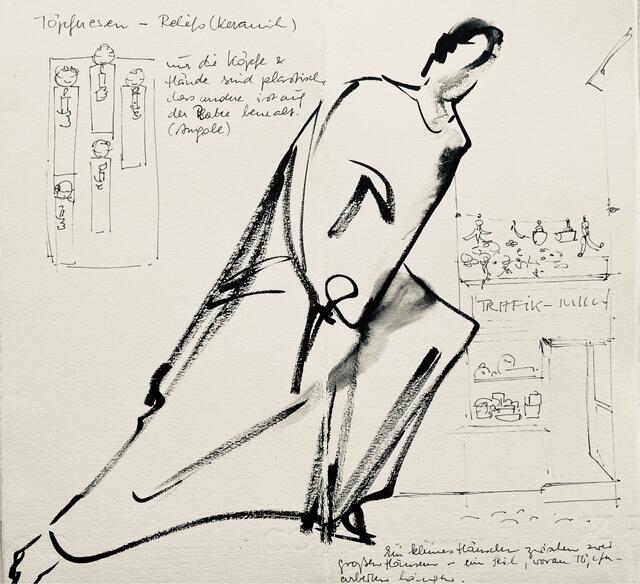 Töpfnesen - Reliefs (Keramik)
nur die Köpfe &
Hände sind plastisch,
das andere ist auf
der Platte bemalt.
(Angobe)
TRAFIK-
Ein kleines Häuschen zwischen zwei
großen Häusern - ein Seil, woran
hängen.